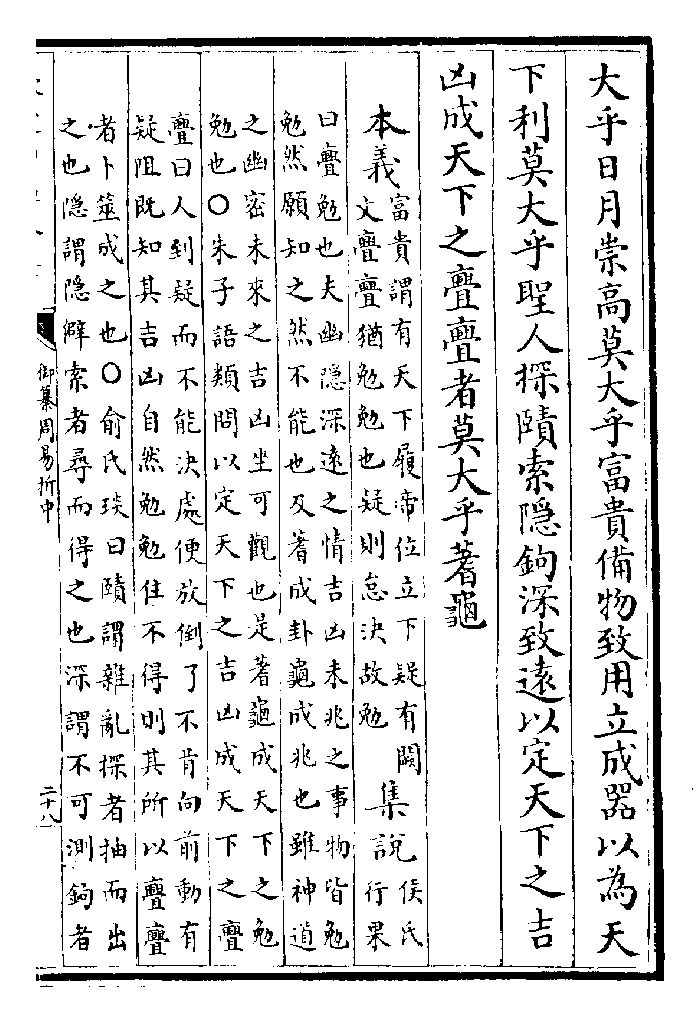 大乎日月崇高莫大乎富貴備物致用立成器以為天
下利莫大乎聖人探賾索隠鉤深致遠以定天下之吉
凶成天下之亹亹者莫大乎蓍龜
本義富貴謂有天下履帝位立下疑有闕
文亹亹猶勉勉也疑則怠決故勉
集說侯氏
行果
曰亹勉也夫幽隠深遠之情吉凶未兆之事物皆勉
勉然願知之然不能也及蓍成卦龜成兆也雖神道
之幽密未來之吉凶坐可觀也是蓍龜成天下之勉
勉也○朱子語類問以定天下之吉凶成天下之亹
亹曰人到疑而不能決處便放倒了不肯向前動有
疑阻既知其吉凶自然勉勉住不得則其所以亹亹
者卜筮成之也○俞氏琰曰賾謂雜亂探者抽而出
之也隠謂隠僻索者尋而得之也深謂不可測鉤者
御纂周易折中
二十八